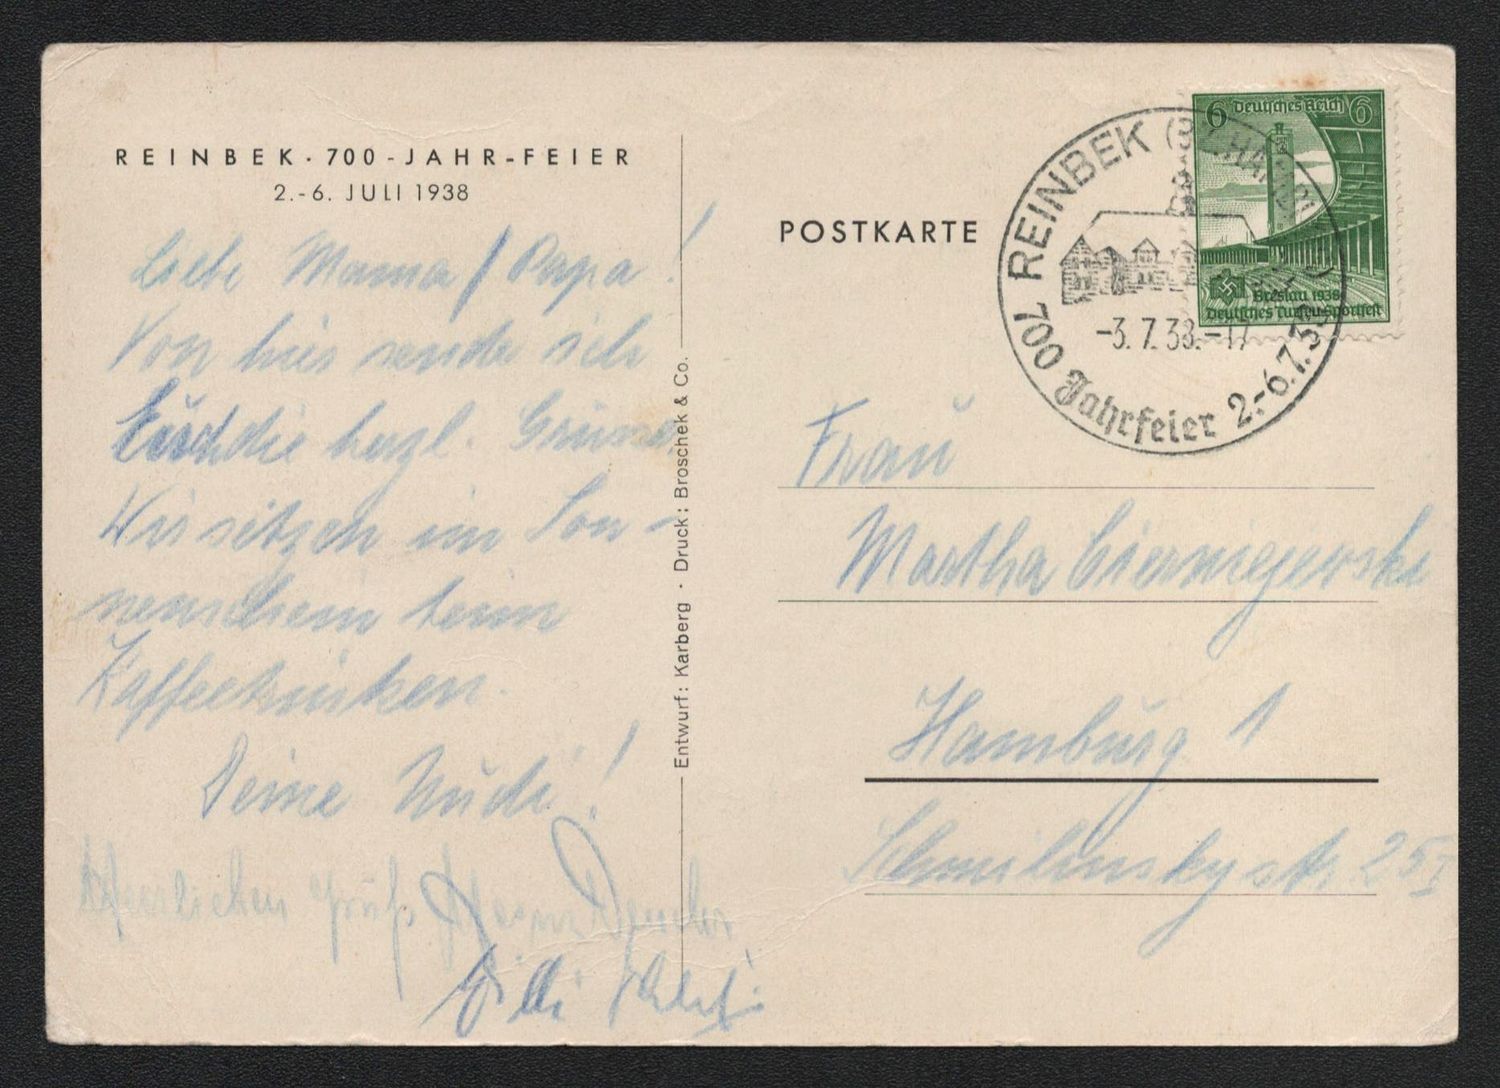 REINBEK · 700 - JAHR - FEIER
2.-6. JULI 1938
Liebe Mama / Papa!
Von hier sende ich
Euch die herzl. Grüsse
Wir sitzen im Son-
nenschein beim
Kaffeetrinken.
Deine Mudi!
Herzlichen Gruß
Entwurf: Karberg · Druck: Broschek & Co.
POSTKARTE
6 Deutsches Reich 6
Breslau 1938
Deutsches Turn-u. Sportfest
REINBEK
-3.7.38.-17
700 Jahrfeier 2.-6.7.38
Frau
Martha Cierniejewski
Hamburg 1
Schmilinskystr. 25 I